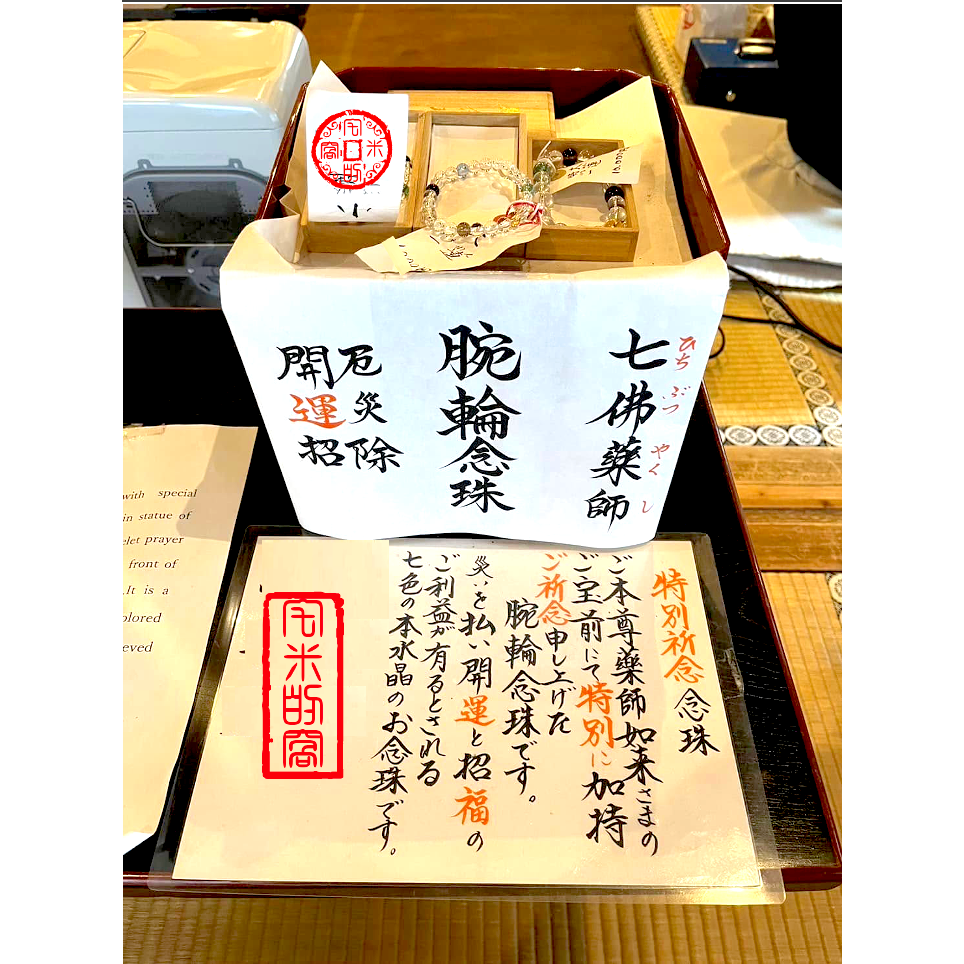 七佛藥師
ひち ぶつ やくし
腕輪念珠
厄災除
開運招
特別祈念 念珠
ご本尊薬師如来さまの
ご宝前にて特別に加持
ご祈念申し上げた
腕輪念珠です。
災いを払い開運と招福の
ご利益が有るとされる
七色の本水晶のお念珠です。
with special
in statue of
elet prayer
front of
.It is a
olored
eved
宅米的窩
宅米的窩